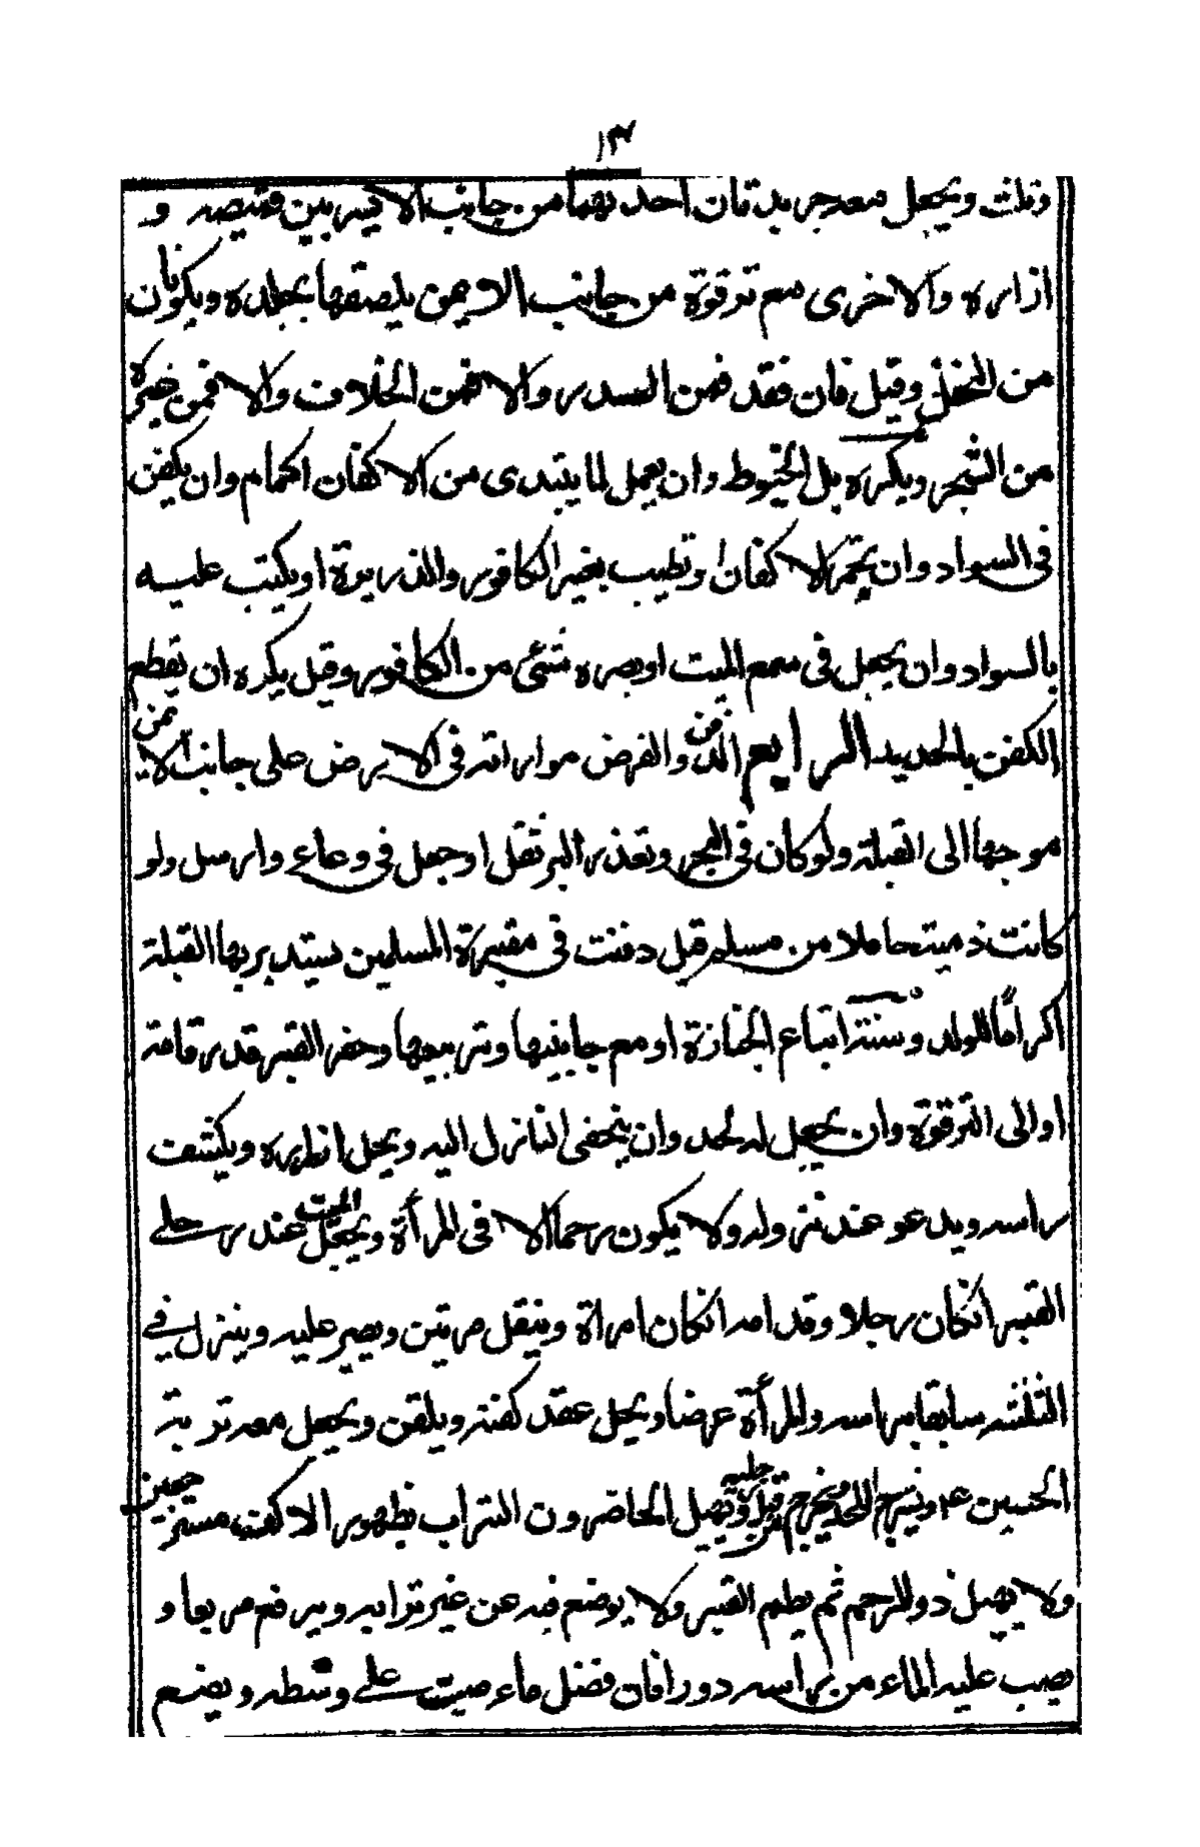 ١٣
وثلث ويجعل معه جريدتان احديهما من جانب الايسر بين قميصه و
ازاره والاخرى مع ترقوة من جانب الايمن يلصقها بجلده ويكونان
من النخل وقيل فان فقد فمن السدر والا فمن الخلاف والا فمن غيره
من الشجر ويكره بل الخيوط وان يعمل لما يبتدى من الاكفان اكمام وان يكفن
فى السواد وان يجمر الاكفان او تطيب بغير الكافور والذريرة او يكتب عليه
بالسواد وان يجعل فى سمع الميت او بصره شئ من الكافور وقيل يكره ان يقطع
الكفن بالحديد الرابع الدفن والفرض مواراته فى الارض على جانب الايمن
موجها الى القبلة ولو كان فى البحر وتعذر البر ثقل او جعل فى وعاء وارسل ولو
كانت ذمية حاملا من مسلم قيل دفنت فى مقبرة المسلمين يستدبر بها القبلة
اكراما للولد وسننه اتباع الجنازة او مع جانبيها وتربيعها وحفر القبر قدر قامة
او الى الترقوة وان يجعل له لحد وان يتحفى النازل اليه ويحل ازراره ويكشف
راسه ويدعو عند نزوله ولا يكون رحما الا فى المرأة ويجعل الميت عند رجلى
القبر انكان رجلا وقدامه انكان امراة وينقل مرتين ويصبر عليه وينزل في
الثلثة سابقا براسه والمرأة عرضا ويحل عقد كفنه ويلقن ويجعل معه تربة
الحسين ع ويشرج اللحد ويخرج من قبل رجليه ويهيل الحاضرون التراب بظهور الاكف مسترجعين
ولا يهيل ذو الرحم ثم يطم القبر ولا يوضع فيه عن غير ترابه ويرفع مربعا و
يصب عليه الماء من راسه دورا فان فضل ماء صبت على وسطه ويضع